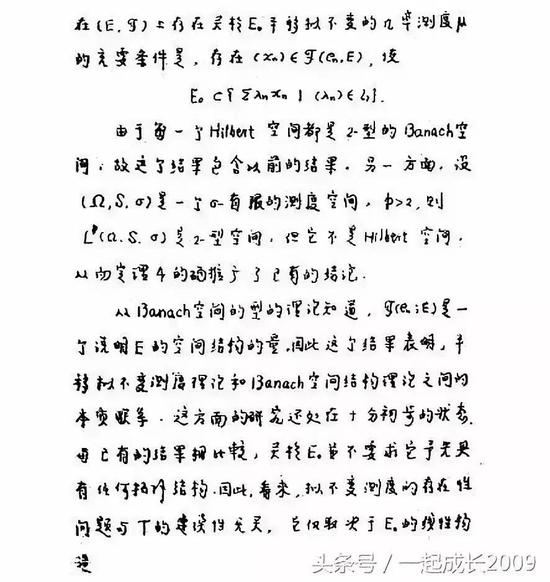 在(E,𝒯)上存在灵於E₀平移拟不变的几率测度μ
的充要条件是, 存在(xₙ)∈𝒯(eₙ,E), 使
E₀⊂{Σλₙxₙ|(λₙ)∈l₂}.
由于每一个Hilbert空间都是2-型的Banach空
间, 故这个结果包含以前的结果. 另一方面, 设
(Ω,S,σ)是一个σ-有限的测度空间, p>2, 则
Lᵖ(Ω.S.σ)是2-型空间, 但它不是Hilbert空间,
从而定理4的确推广了已有的结论.
从Banach空间的型的理论知道, 𝒯(eₙ;E)是一
个说明E的空间结构的量,因此这个结果表明, 平
移拟不变测度理论和Banach空间结构理论之间的
本质联系. 这方面的研究还处在十分初步的状态.
与已有的结果相比较, 灵於E₀并不要求它予先具
有任何拓扑结构.因此, 看来, 拟不变测度的存在性
问题与T的建设性无灵, 它仅取决于E₀的线性构
造
头条号 / 一起成长2009